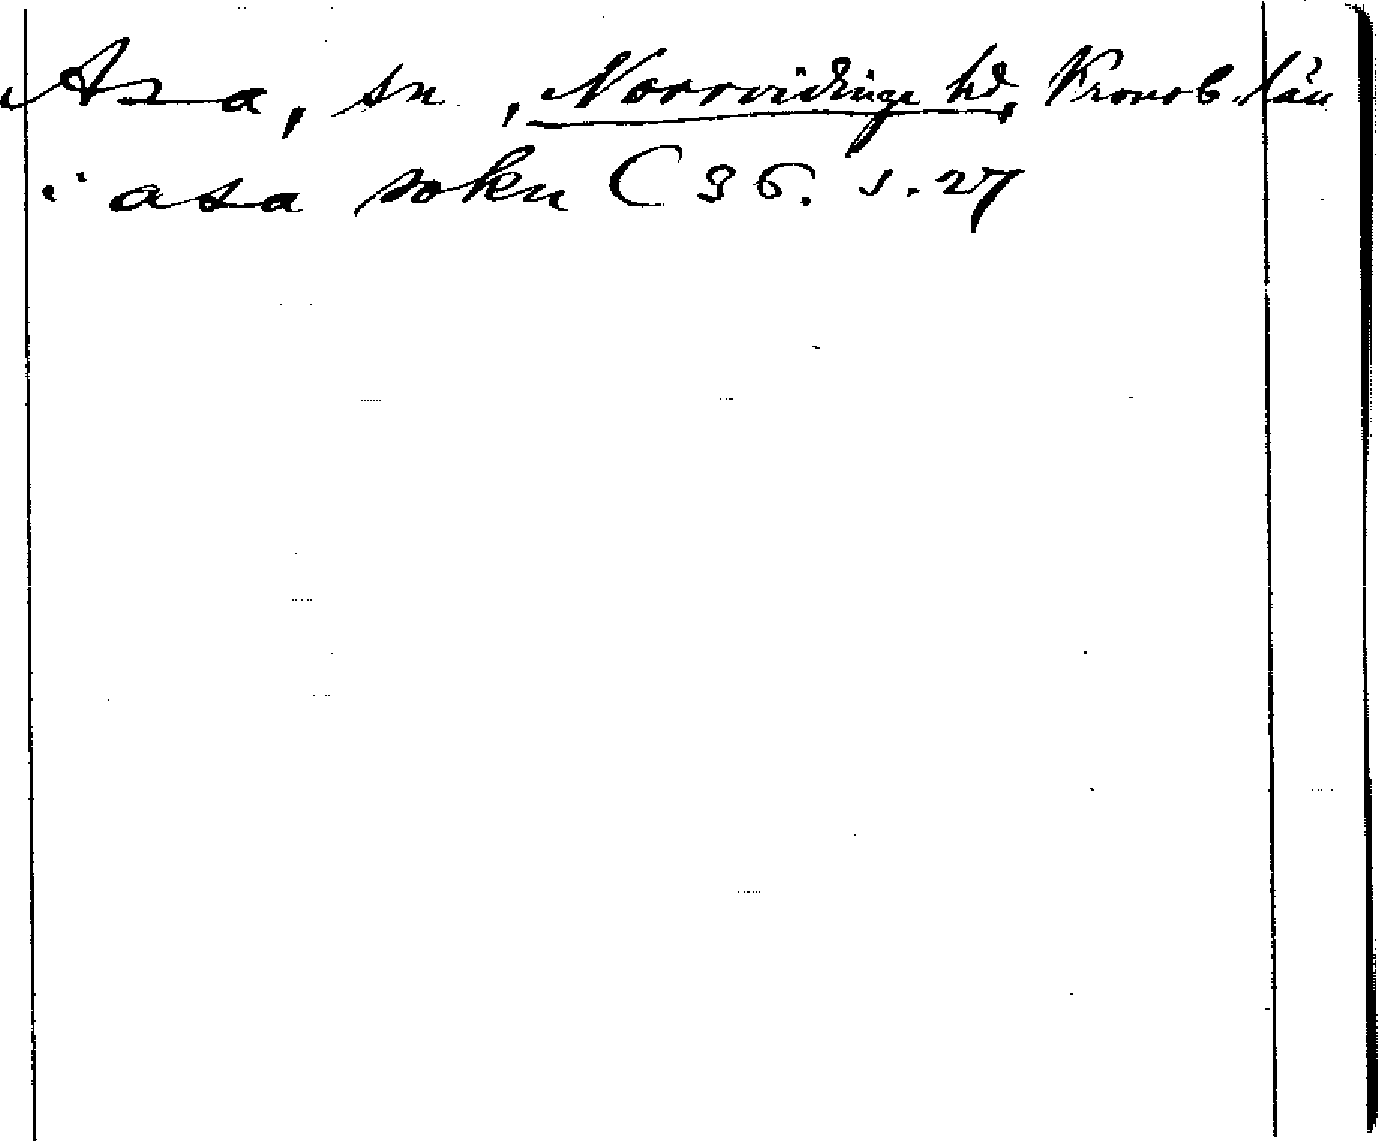 Asa, sn, Norrvidinge hd, Kronob. län
i asa sokn C 36. s. 27